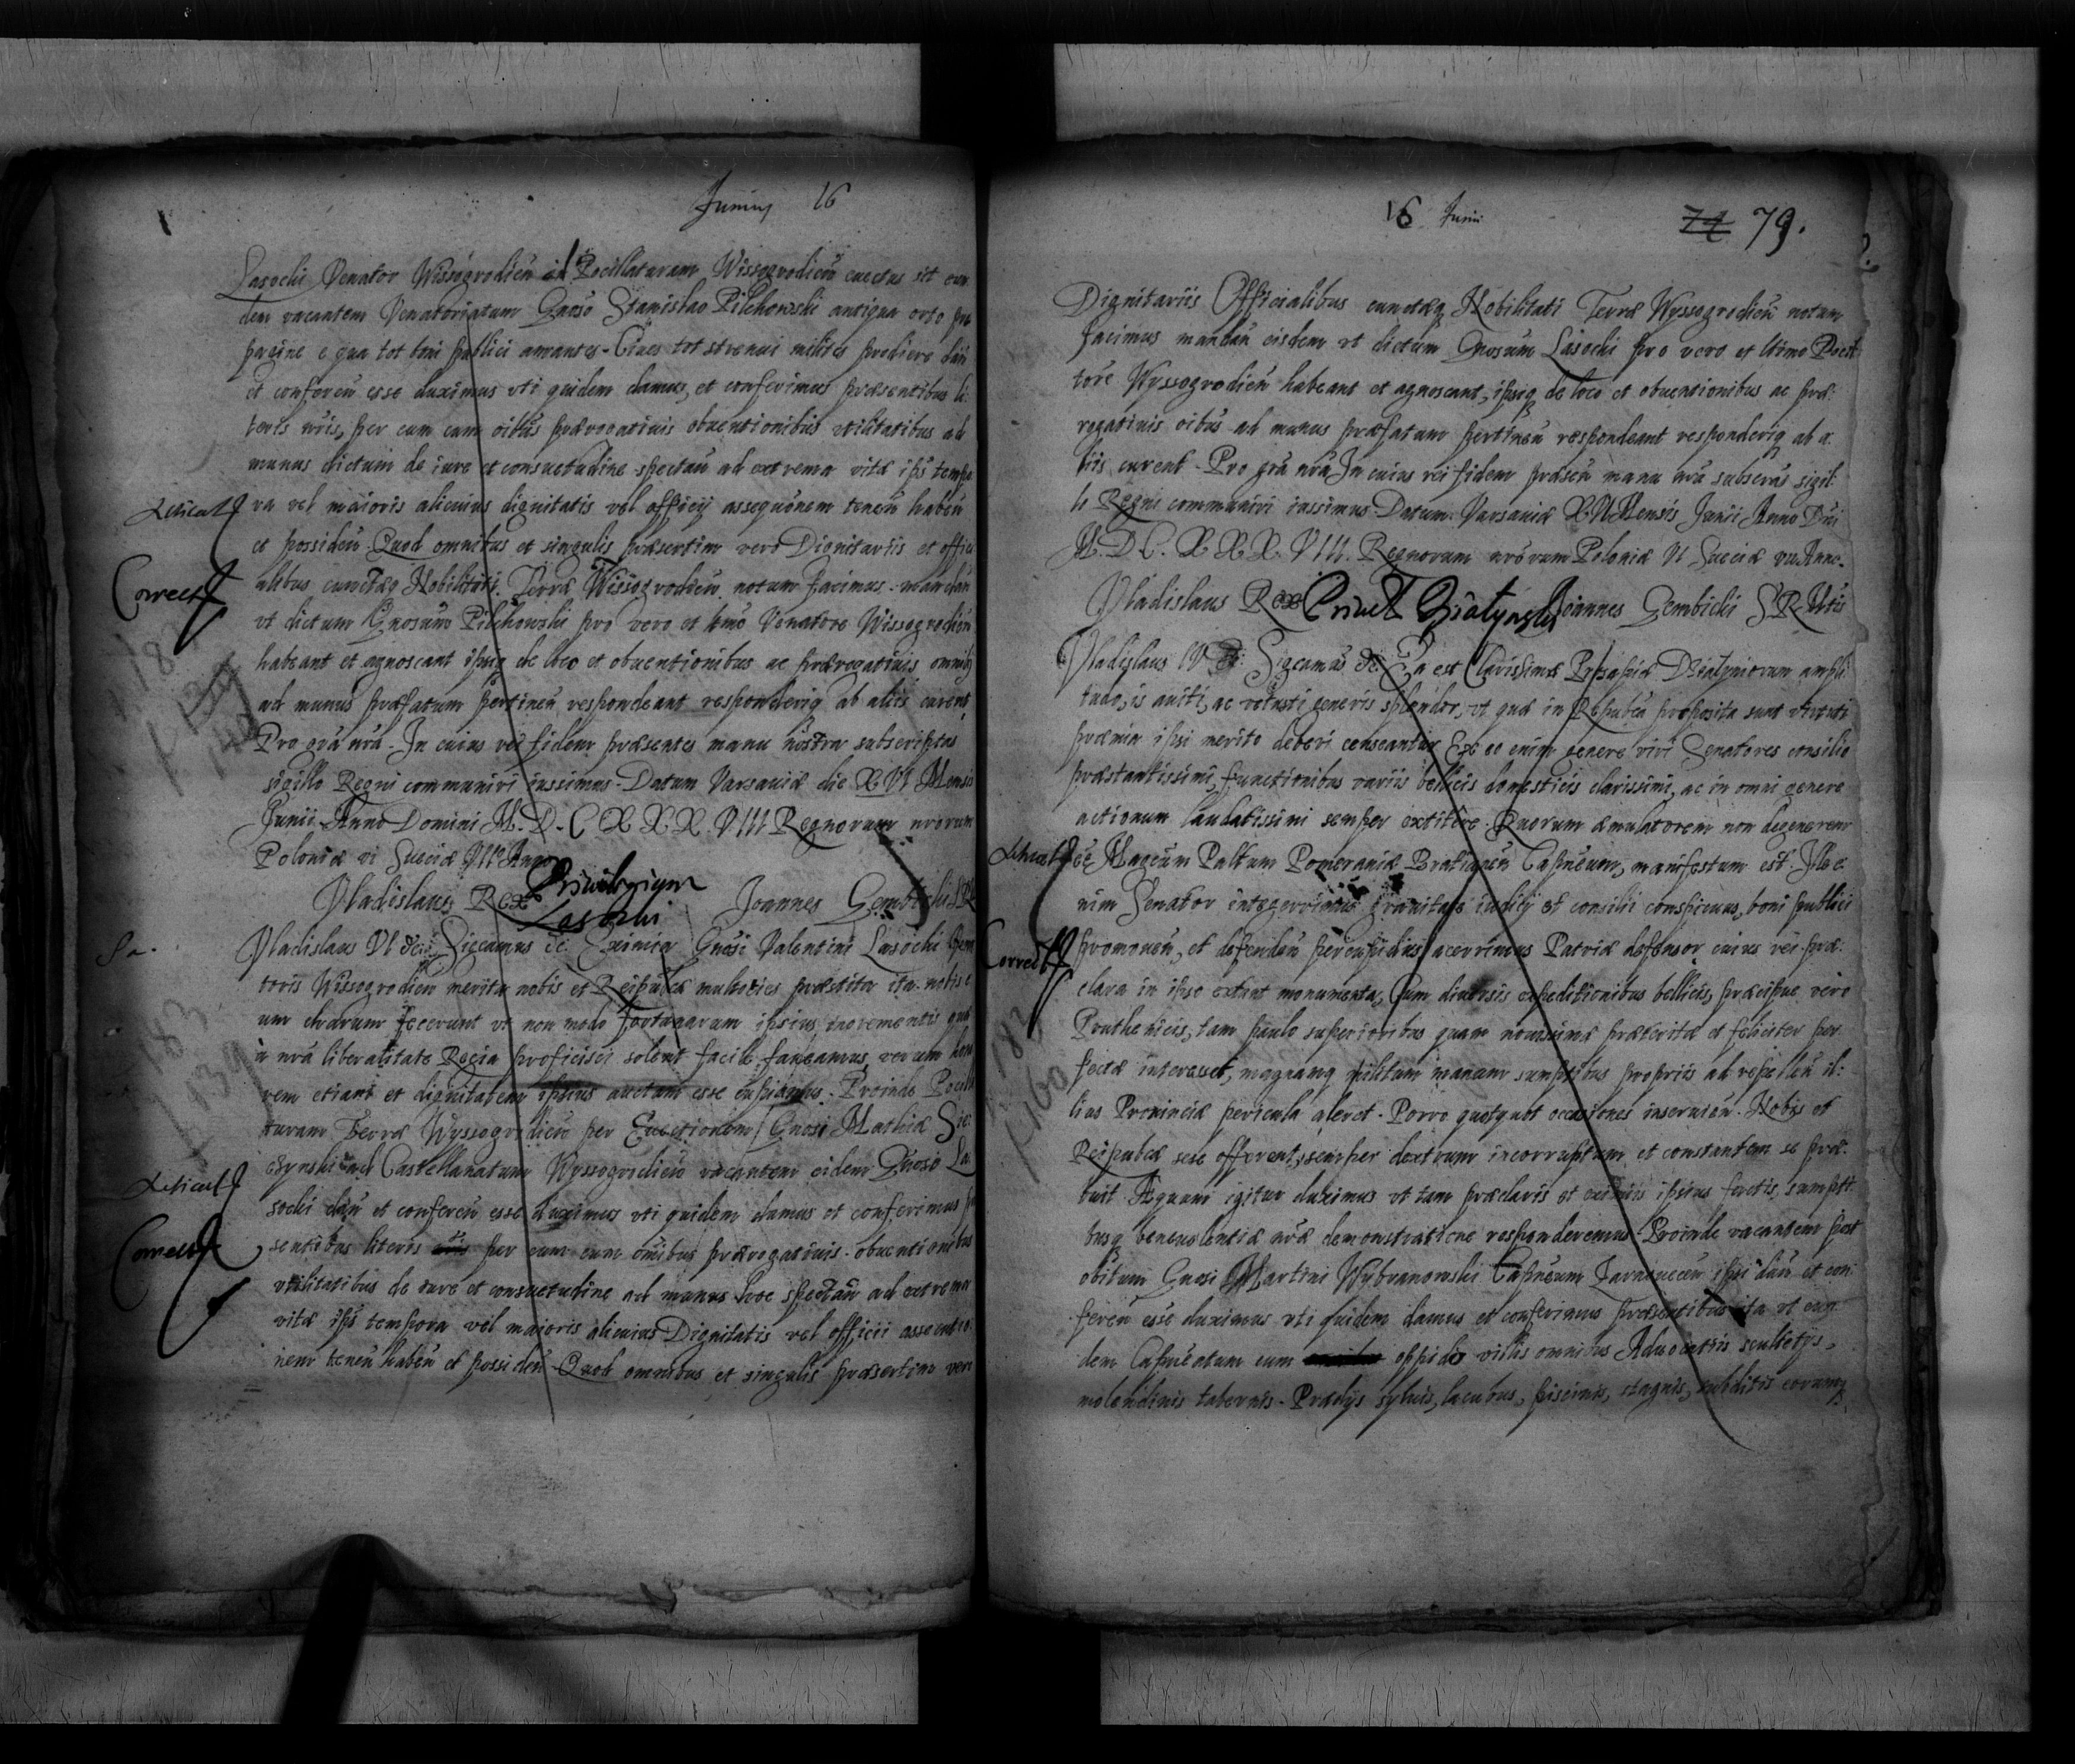 Junius 16
Lasocki Venator Wissogrodień ad Pocillaturam Wissogrodień euectus sit
dem vacantem Venatoriatum Gnoso Stanislao Pilchowski antiqua orto
e qua tot boni publici amantes Ciues tot strenui milites prodiere dań
et confereń esse duximus vti quidem damus, et conferimus præsentibus li
teris nris, per eum cum oibus prærogatiuis obuentionibus vtilitatibus ad
munus dictum de iure et consuetudine spectań ad extrema vitæ ipś tempo
ra vel maioris alicuius dignitatis vel officij assequonem teneń habeń
et possideń Quod omnibus et singulis præsertim vero Dignitariis et offici
alibus cunctæq Nobilitati Terræ Wissogrodień notum facimus mandań
vt dictum Gnosum Pilchowski pro vero et ltimo Venatore Wissogrodień
habeant et agnoscant ipsiq de loco et obuentionibus ac prærogatiuis omnibq
ad munus præfatum pertineń respondeant responderiq ab aliis curent
Pro gra nra. In cuius rei fidem præsentes manu nostra subscriptas
sigillo Regni communiri iussimus. Datum Varsauiæ die XVI Mensis
Junii Anno Domini M.D.C.X.X.X.VIII Regnorum nrorum
Poloniæ vi Sueciæ VII Anno
Vladislaus Rex Joannes Gembicki
Priuilegium
Lasocki
Vladislaus VI &c: Sigcamus &c. Eximia Gnosi Valentini Lasocki
toris Wissogrodień merita nobis et Reipubcæ multoties præstita ita nobis e
um charum fecerunt vt non modo fortunarum ipsius incrementis quæ
a nra liberalitate Regia proficisci solent facile faueamus, verum hono
rem etiam et dignitatem ipsius auctam esse cupiamus. Proinde Pocilla
turam Terræ Wyssogrodień per Euectionem Gnosi Mathiæ
ad Castellanatum Wyssogrodień vacantem eidem Gnoso La
socki dań et confereń esse duximus vti quidem damus et conferimus
sentibus literis per eum cum omibus prærogatiuis obuentionibus
vtilitatibus de iure et consuetudine ad munus hoc spectań ad extrema
vitæ ipś tempora vel maioris alicuius Dignitatis vel officii assecutio
nem teneń habeń et possideń Quod omnibus et singulis præsertim vero
Correct
183
139
Correct
16 Junii 79.
Dignitariis Officialibus cunctæq Nobilitati Terræ Wyssogrodień notum
facimus mandań eisdem vt dictum Gnosum Lasocki pro vero et ltimo Pocil
tore Wyssogrodień habeant et agnoscant, ipsiq de loco et obuentionibus ac præ:
rogatiuis oibus ad munus præfatum pertineń respondeant responderiq ab a
liis curent. Pro gra nra In cuius rei fidem præseń manu nra subscras sigil:
lo Regni communiri iussimus Datum Varsauiæ XVI Mensis Junii Anno Dni
M.D.C.X.X.X.VIII. Regnorum nrorum Poloniæ VI Sueciæ vii Anno.
Vladislaus Rex Joannes Gembicki
Vladislaus IV Sigcamus &c Ea est Clarissimæ Prosapiæ Dzialyniorum ampli
tudo, is auiti, ac vetusti generis splendor, vt quæ in Repubca proposita sunt virtuti
præmia ipsi merito deberi censeantur Ex eo enim genere viri Senatores consilio
præstantissimi, functionibus variis bellicis domesticis clarissimi, ac in omni genere
actionum laudatissimi semper extitere. Quorum æmulatorem non degenerem
Magcum Paltum Pomeraniæ manifestum est. Ille e
nim Senator integerrimus grauitate iudicij et consilii conspicuus, boni publici
promoueń, et defendeń percupidus acerrimus Patriæ defensor cuius rei præ:
clara in ipso extant monumenta, Cum diuersis expeditionibus bellicis, præcipue vero
Pruthenicis, tam paulo superioribus quam nouissimæ præteritæ et feliciter per
fectæ interesset, magnamq militum manum sumptibus propriis ad repelleń il:
lius Prouinciæ pericula aleret. Porro quotquot occasiones inseruień Nobis et
Reipubcæ sese offerent, semper dextrum incorruptum et constantem se præ:
buit Æquum igitur duximus vt tam præclaris et eximiis ipsius factis, sumpti
busq beneuolentiæ nræ demonstratione responderemus. Proinde vacantem post
obitum Gnosi Martini Wybranowski ipsi dań et con
fereń esse duximus vti quidem damus et conferimus præsentibus ita vt eun
dem cum oppido villis omnibus Aduocatiis scultetijs,
molendinis tabernis. Prædijs syluis, lacubus, piscinis, stagnis, subditis eorumq
Correct